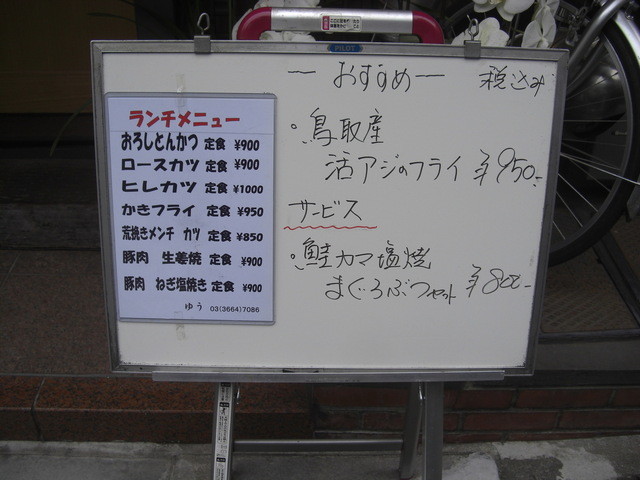 PILOT
ランチメニュー
おろしとんかつ 定食 ¥900
ロースカツ 定食 ¥900
ヒレカツ 定食 ¥1000
かきフライ 定食 ¥950
荒挽きメンチ カツ 定食 ¥850
豚肉 生姜焼 定食 ¥900
豚肉 ねぎ塩焼き 定食 ¥900
ゆう 03(3664)7086
ーおすすめー 税込み
・鳥取産
活アジのフライ ¥950-
サービス
・鮭カマ塩焼
まぐろぶつセット ¥800-